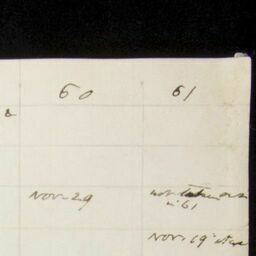 60 61
Nov. 29 not taken
in 61
Nov. 19